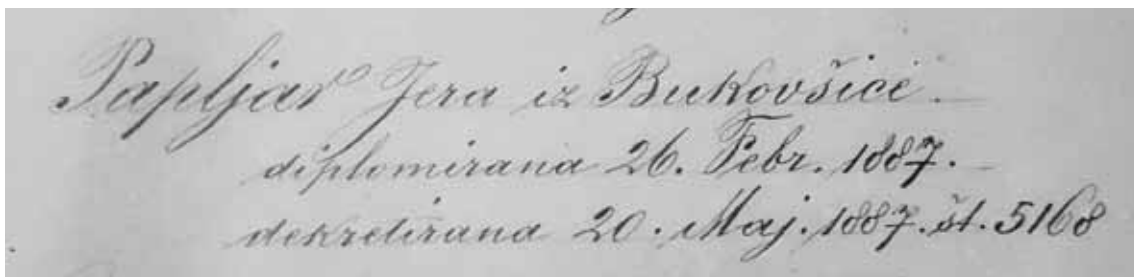 Papljar Jera iz Bukovšice.
diplomirana 26. Febr. 1887.
dekretirana 20. Maj. 1887. št. 5168